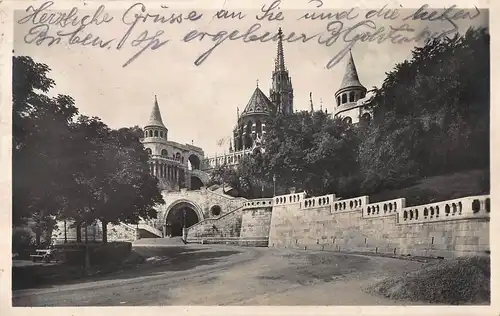 Herzliche Grüsse an Sie und die beiden
Buben, Ihr ergebener